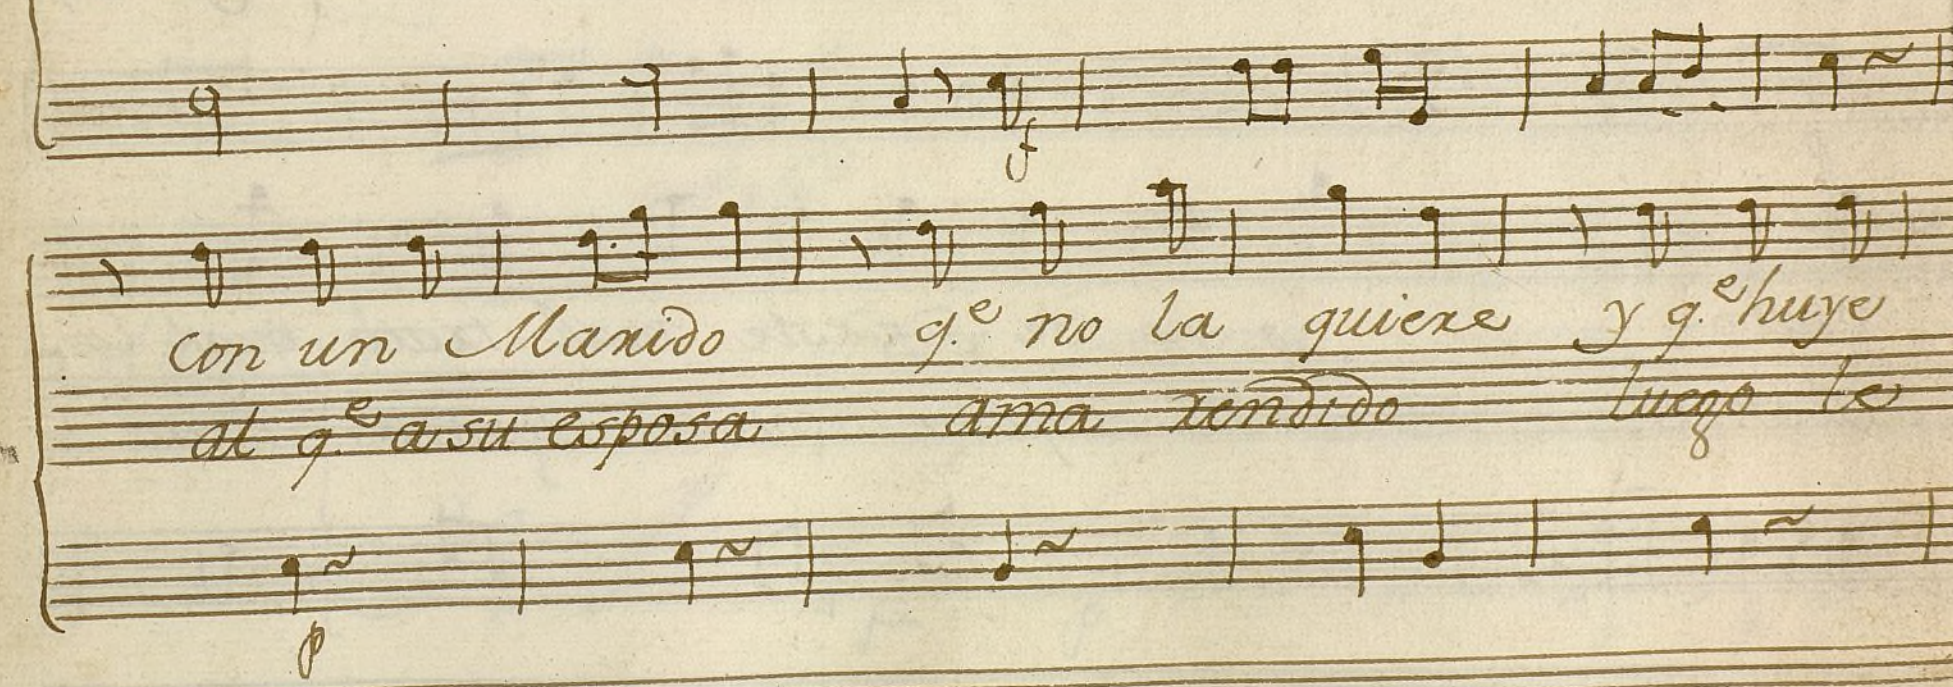 f
con un Marido q.e no la quiere y q.e huye
al q.e a su esposa ama rendido luego le
p